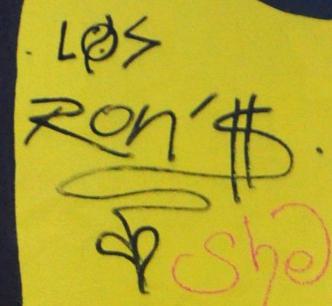 LØS
RON'$.
She